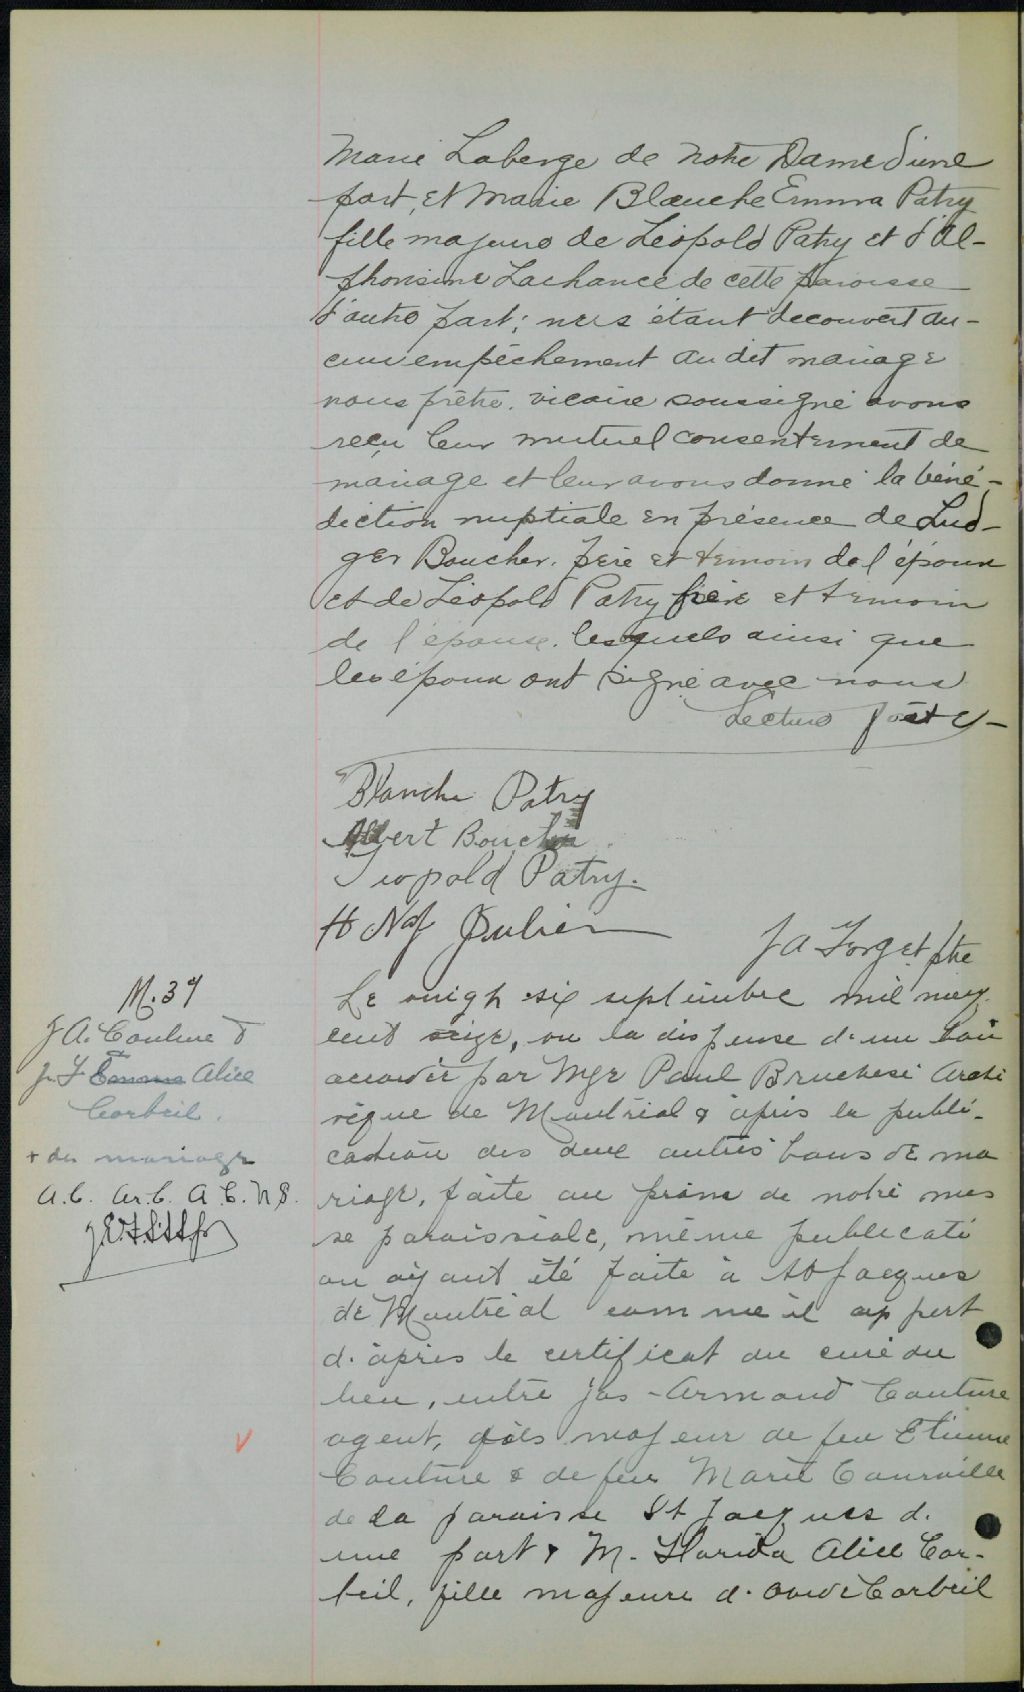 Marie Laberge de Notre Dame d'une
part, et Marie Blanche Emma Patry
fille majeure de Léopold Patry et d'Al-
phonsine Lachance de cette paroisse
d'autre part; ne s'étant decouvert au-
cun empêchement au dit mariage
nous prêtre. vicaire soussigné avons
reçu leur mutuel consentement de
mariage et leur avons donné la béné-
diction nuptiale en présence de Lud-
ger Boucher. père et temoin de l'époux
et de Léopold Patry frère et temoin
de l'épouse. lesquels ainsi que
les époux ont signé avec nous
Lecture faite
Blanche Patry
Albert Boucher
Leopold Patry.
H Naf Julien
J A Forget ptre
M. 37
J A. Couture &
Alice
Corbeil.
+ de mariage
A. C. Ar. C. A C. N S.
Le vingt six septembre mil neuf
cent seize, vu la dispense d'un ban +
accordée par Mgr Paul Bruchesi Arche
vêque de Montréal & après la publi-
cation des deux autres bans de ma
riage, faite au prône de notre mes
se paroissiale, même publicati
on ayant été faite à St Jacques
de Montréal comme il appert
d'après le certificat du curé du
lieu, entre Jos-Armand Couture
agent, fils majeur de feu Etienne
Couture & de feu Marie Courville
de la paroisse St Jacques d'
une part & M. Florida Alice Cor-
beil, fille majeure d' Corbeil